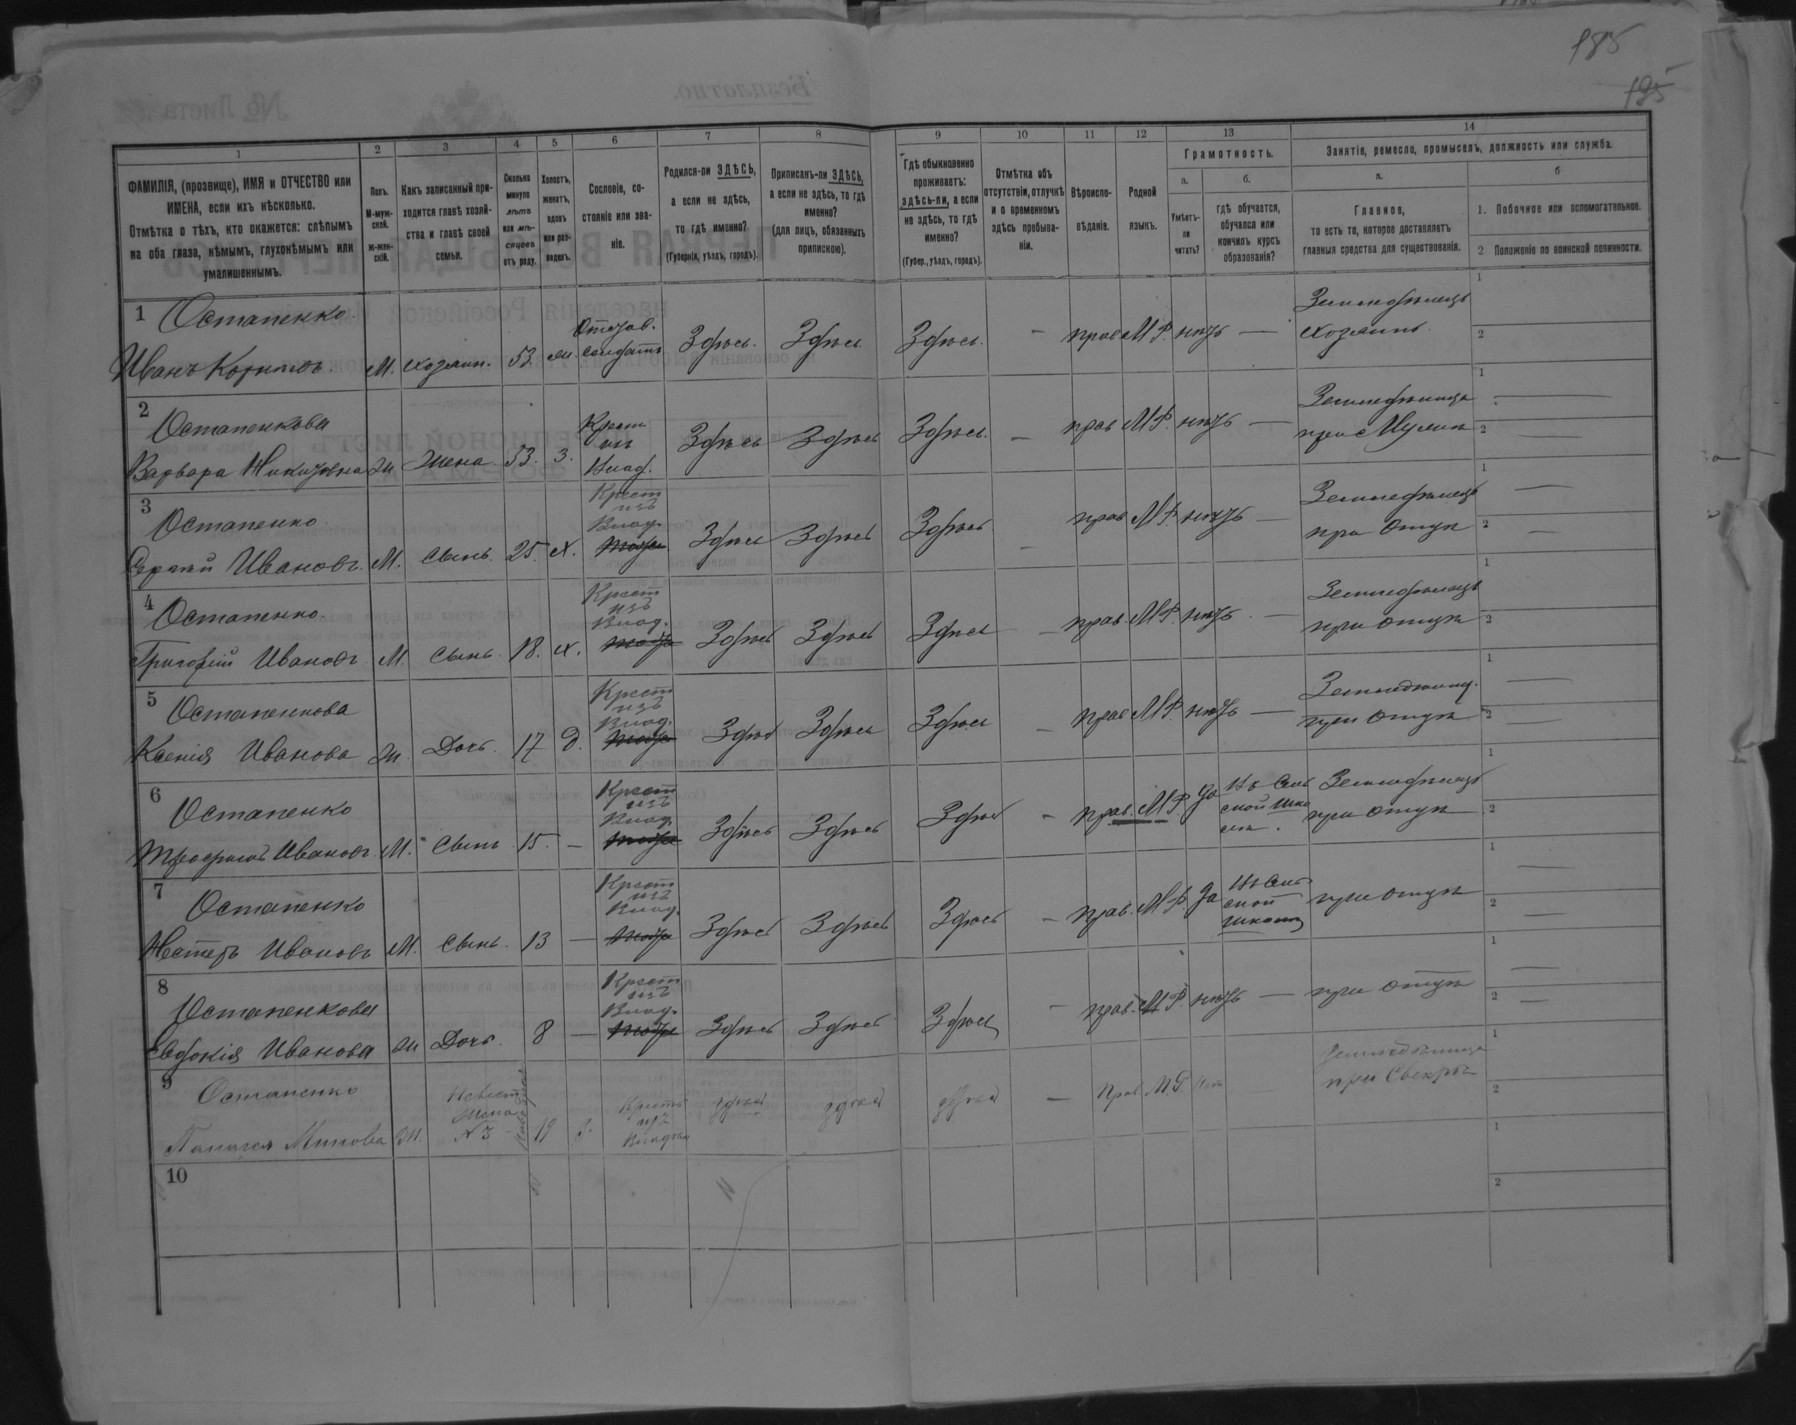 185
195
1 2 3 4 5 6 7 8 9 10 11 12 13 14
ФАМИЛІЯ, (прозвище), ИМЯ и ОТЧЕСТВО или ИМЕНА, если ихъ нѣсколько.
Отмѣтка о тѣхъ, кто окажется: слѣпымъ на оба глаза, нѣмымъ, глухонѣмымъ или умалишеннымъ.
Полъ.
М-муж-
ской.
Ж-жен-
скій.
Какъ записанный при-
ходится главѣ хозяй-
ства и главѣ своей
семьи.
Сколько
минуло
лѣтъ
или мѣ-
сяцевъ
отъ роду.
Холостъ,
женатъ,
вдовъ
или раз-
веденъ.
Сословіе, со-
стояніе или зва-
ніе.
Родился-ли ЗДѢСЬ,
а если не здѣсь,
то гдѣ именно?
(Губернія, уѣздъ, городъ).
Приписанъ-ли ЗДѢСЬ,
а если не здѣсь, то гдѣ
именно?
(для лицъ, обязанныхъ
припискою).
Гдѣ обыкновенно
проживаетъ:
здѣсь-ли, а если
не здѣсь, то гдѣ
именно?
(Губер., уѣздъ, городъ).
Отмѣтка объ
отсутствіи, отлучкѣ
и о временномъ
здѣсь пребыва-
ніи.
Вѣроиспо-
вѣданіе.
Родной
языкъ.
Грамотность.
а.
Умѣетъ-
ли
читать?
б.
гдѣ обучается,
обучался или
кончилъ курсъ
образованія?
Занятіе, ремесло, промыселъ, должность или служба.
а.
Главное,
то есть то, которое доставляетъ
главныя средства для существованія.
б
1. Побочное или вспомогательное.
2 Положеніе по воинской повинности.
1 Остапенко
Иванъ М. хозяин. 53 солдатъ Здѣсь. Здѣсь Здѣсь. — прав М.Р. нѣтъ — Земледѣлецъ
хозяинъ
2 Остапенкова
Варвара Ж Жена 53. З. Крест изъ Влад. Здѣсь Здѣсь Здѣсь. — прав М.Р. нѣтъ —
3 Остапенко
Ивановъ М. Сынъ. 25. Х. Крест изъ Влад. Здѣсь Здѣсь Здѣсь — прав М.Р. нѣтъ — Земледѣлецъ
при Отцѣ
4 Остапенко
Григорій Ивановъ М. Сынъ 18. Х. Крест изъ Влад. Здѣсь Здѣсь Здѣсь — прав. М.Р. нѣтъ — Земледѣлецъ
при Отцѣ
5 Остапенкова
Ксенія Иванова Ж Дочь 17 Д. Крест изъ Влад. Здѣсь Здѣсь Здѣсь — прав М.Р. нѣтъ —
при Отцѣ
6 Остапенко
Ивановъ М. Сынъ 15. — Крест изъ Влад. Здѣсь Здѣсь Здѣсь — прав. М.Р. да Земледѣлецъ
при Отцѣ
7 Остапенко
Нестеръ Ивановъ М. Сынъ. 13 — Крест изъ Влад. Здѣсь Здѣсь Здѣсь — прав. М.Р. да при Отцѣ
8 Остапенкова
Евдокія Иванова Ж Дочь. 8 — Крест изъ Влад. Здѣсь Здѣсь Здѣсь — прав. М.Р. нѣтъ — при Отцѣ
9 Остапенко
Ж. Жена N 3 19 З. изъ здѣсь здѣсь здѣсь — Прав М.Р.
при Свекрѣ
10